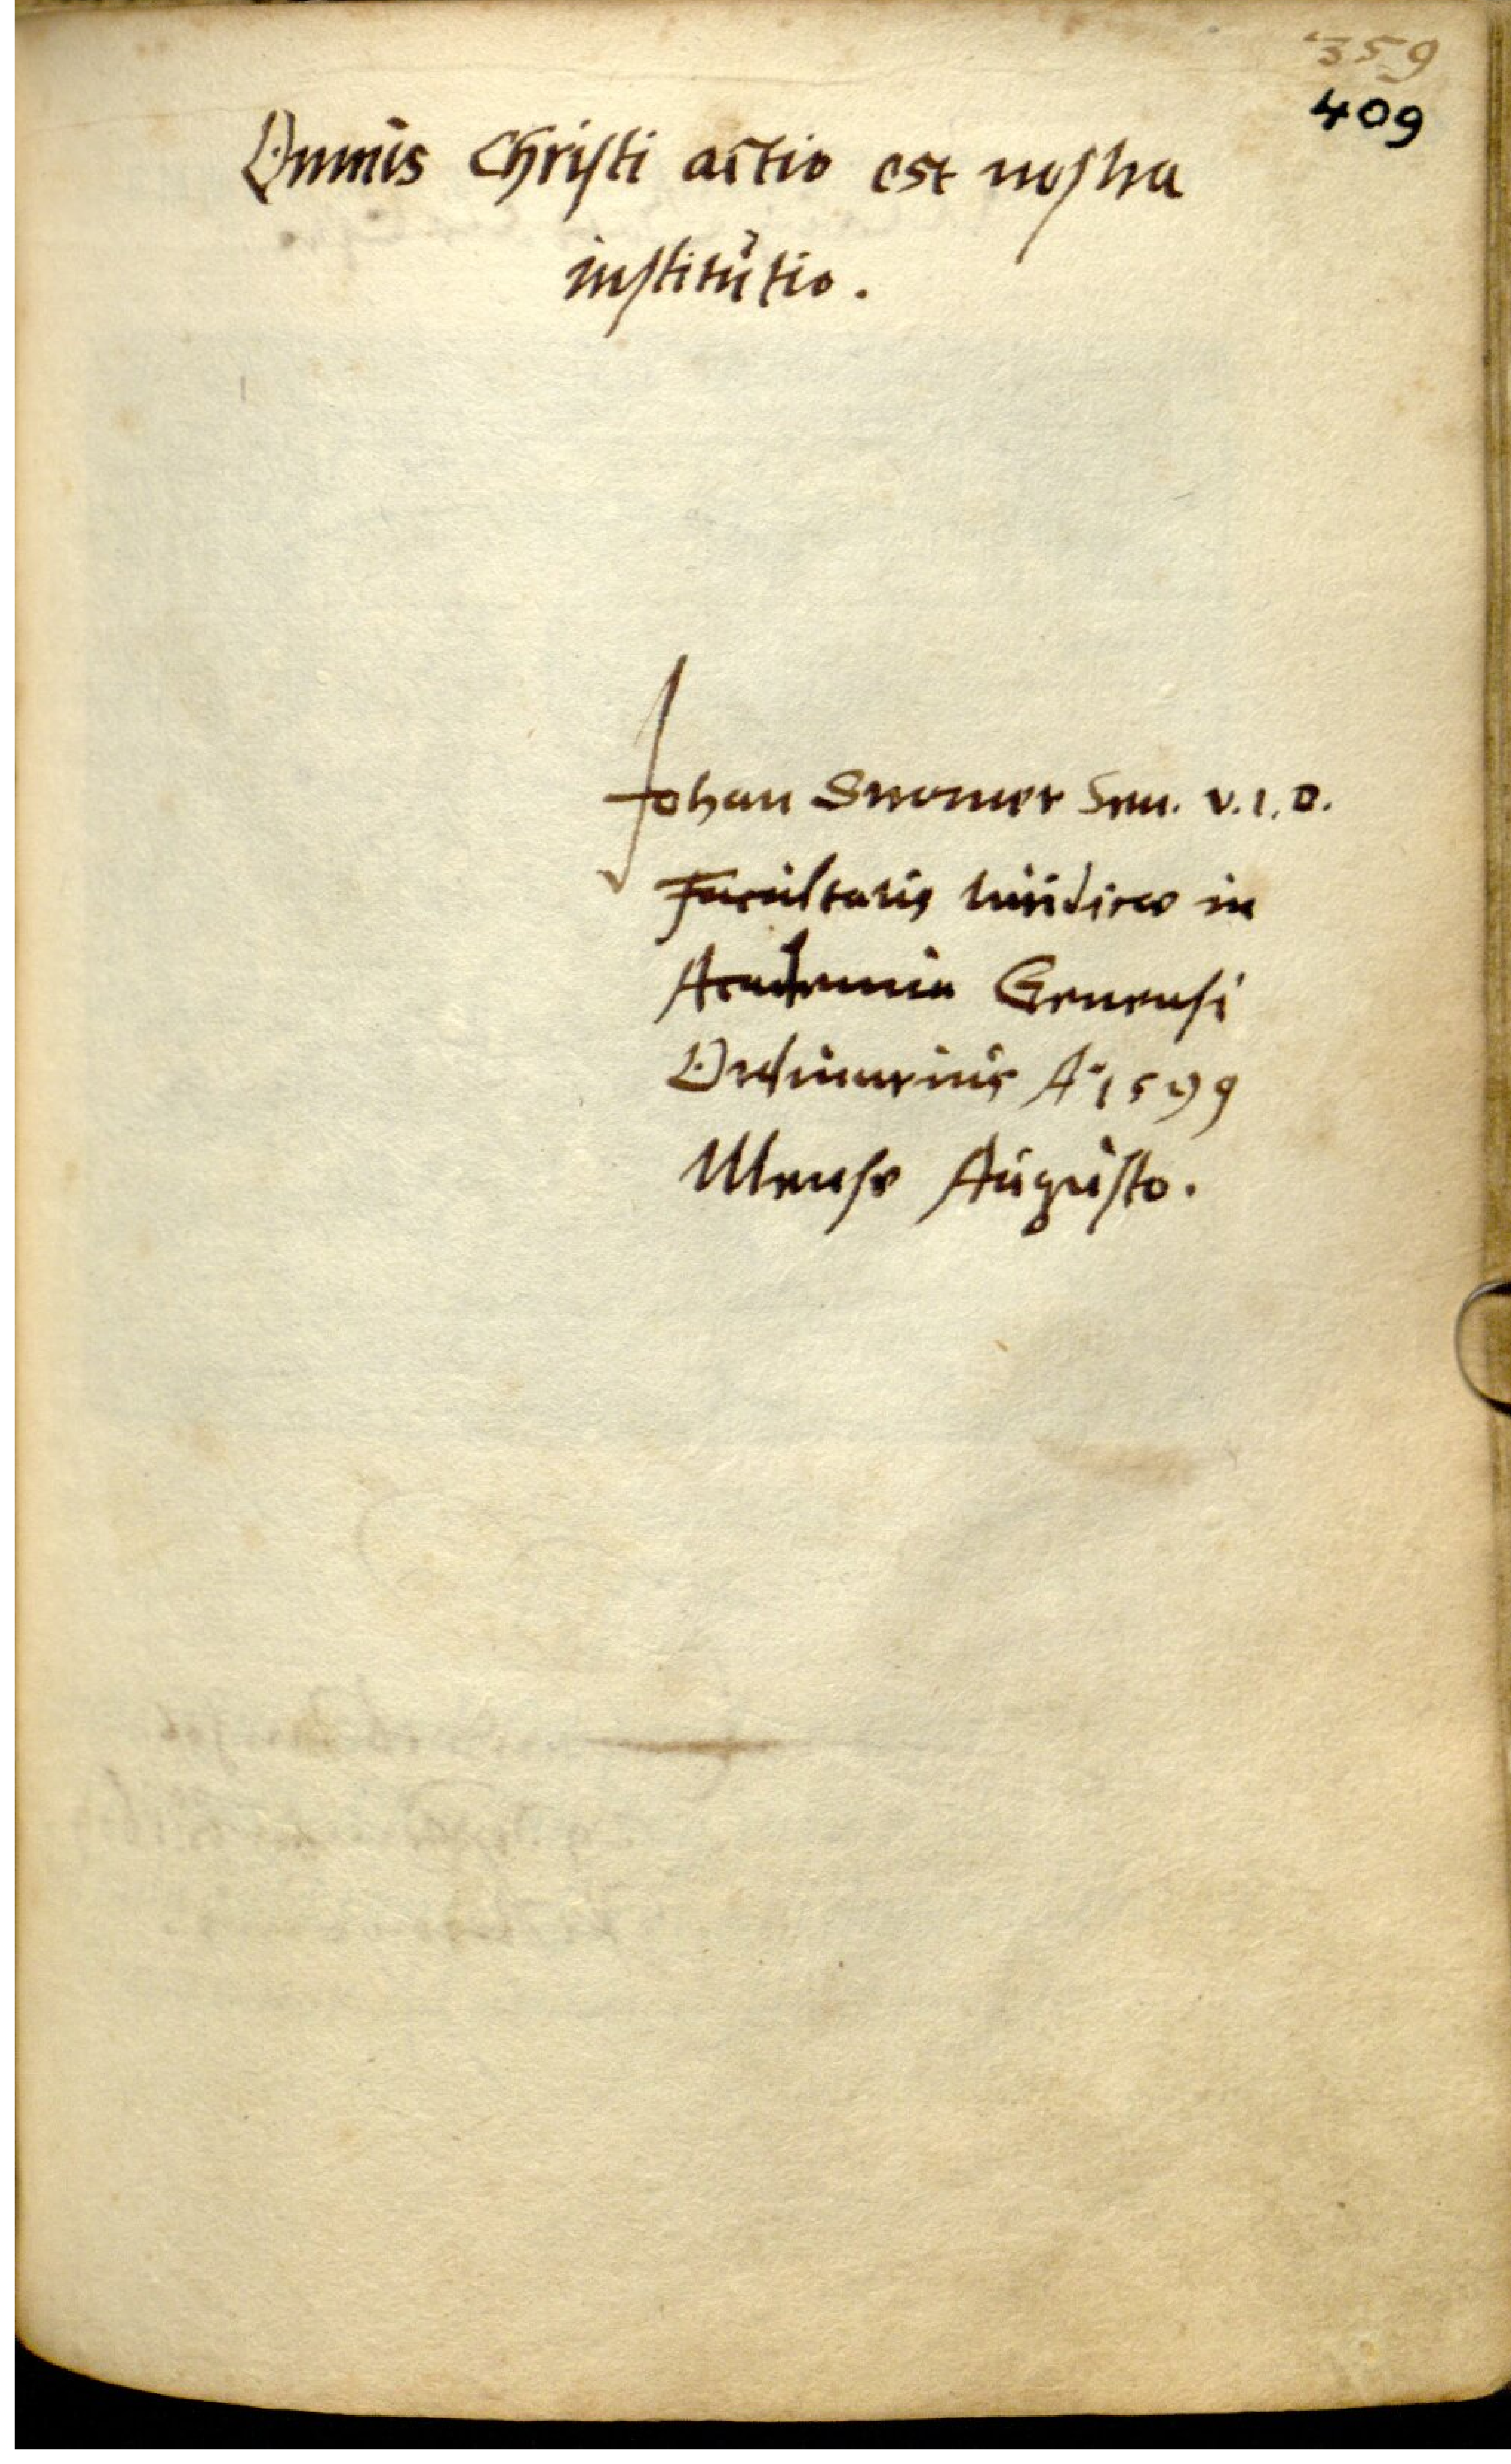 359
409
Omnis Christi actio est nostra
institutio.
Johan Stromer Sen. V.I.D.
Facultatis Iuridicae in
Academia Genensi
Ordinarius Aº 1599
Mense Augusto.